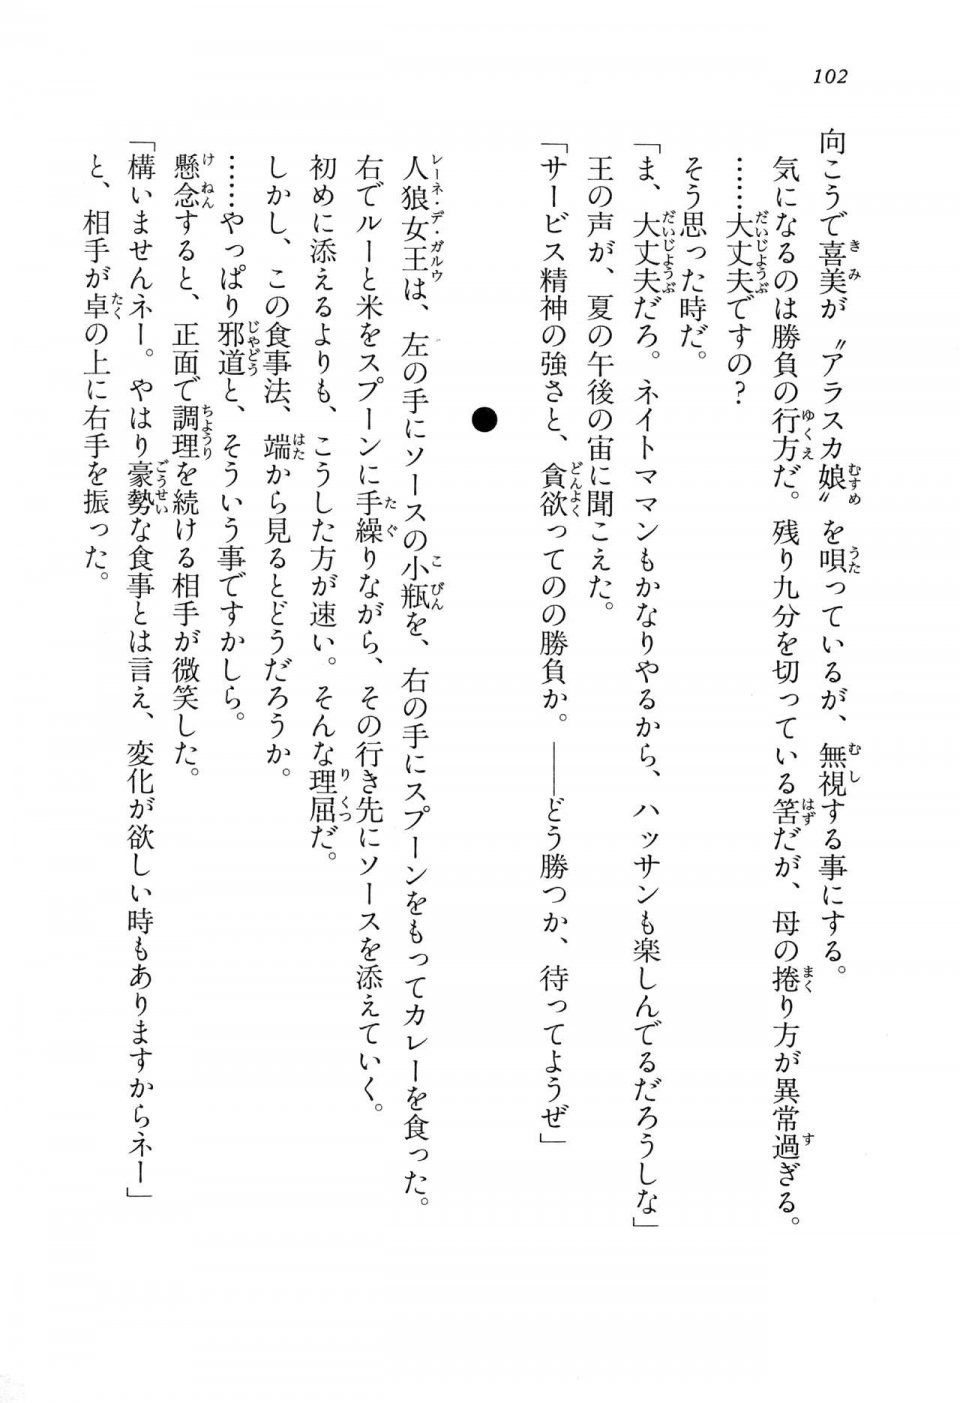 102
向こうで喜美が〝アラスカ娘〟を唄っているが、無視する事にする。
気になるのは勝負の行方だ。残り九分を切っている筈だが、母の捲り方が異常過ぎる。
……大丈夫ですの？
そう思った時だ。
「ま、大丈夫だろ。ネイトママンもかなりやるから、ハッサンも楽しんでるだろうしな」
王の声が、夏の午後の宙に聞こえた。
「サービス精神の強さと、貪欲ってのの勝負か。――どう勝つか、待ってようぜ」
●
人狼女王は、左の手にソースの小瓶を、右の手にスプーンをもってカレーを食った。
右でルーと米をスプーンに手繰りながら、その行き先にソースを添えていく。
初めに添えるよりも、こうした方が速い。そんな理屈だ。
しかし、この食事法、端から見るとどうだろうか。
……やっぱり邪道と、そういう事ですかしら。
懸念すると、正面で調理を続ける相手が微笑した。
「構いませんネー。やはり豪勢な食事とは言え、変化が欲しい時もありますからネー」
と、相手が卓の上に右手を振った。